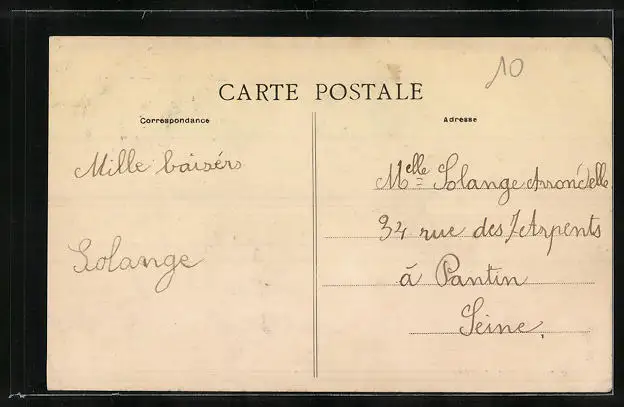 10
CARTE POSTALE
Correspondance
Adresse
Mille baisérs
Solange
Melle Solange
34 rue des 7 Arpents
á Pantin
Seine,